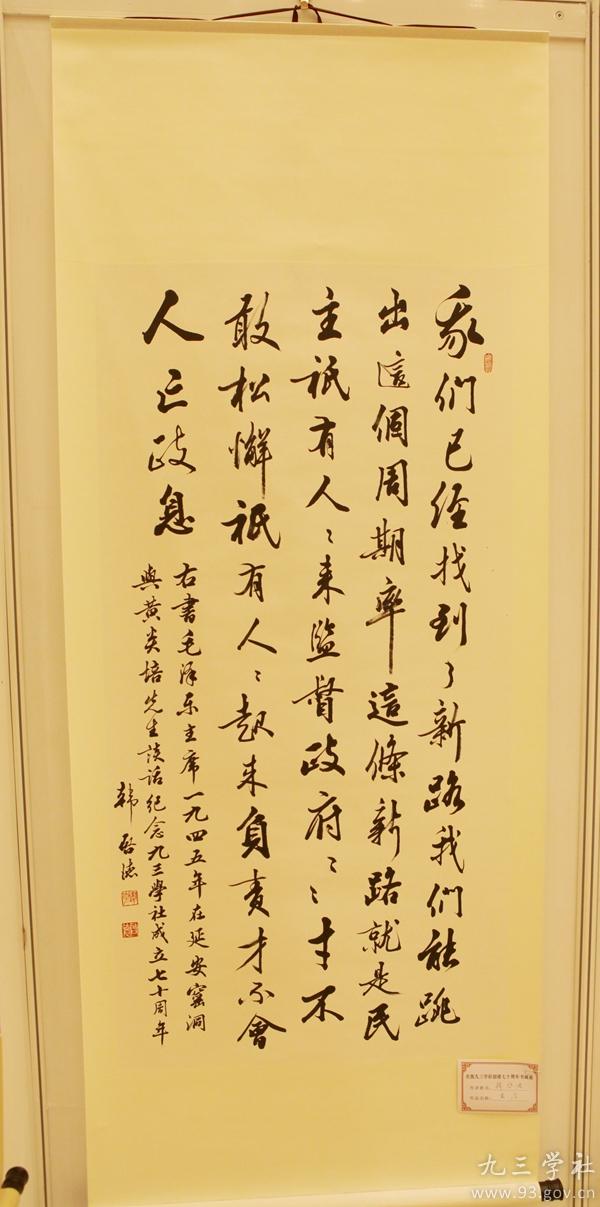 我們已经找到了新路我們能跳
出這個周期率這條新路就是民
主祇有人〻来监督政府〻〻才不
敢松懈祇有人〻起来負責才不會
人亡政息
右書毛泽东主席一九四五年在延安窰洞
與黄炎培先生談话纪念九三學社成立七十周年
韩启德
九三学社
www.93.gov.cn